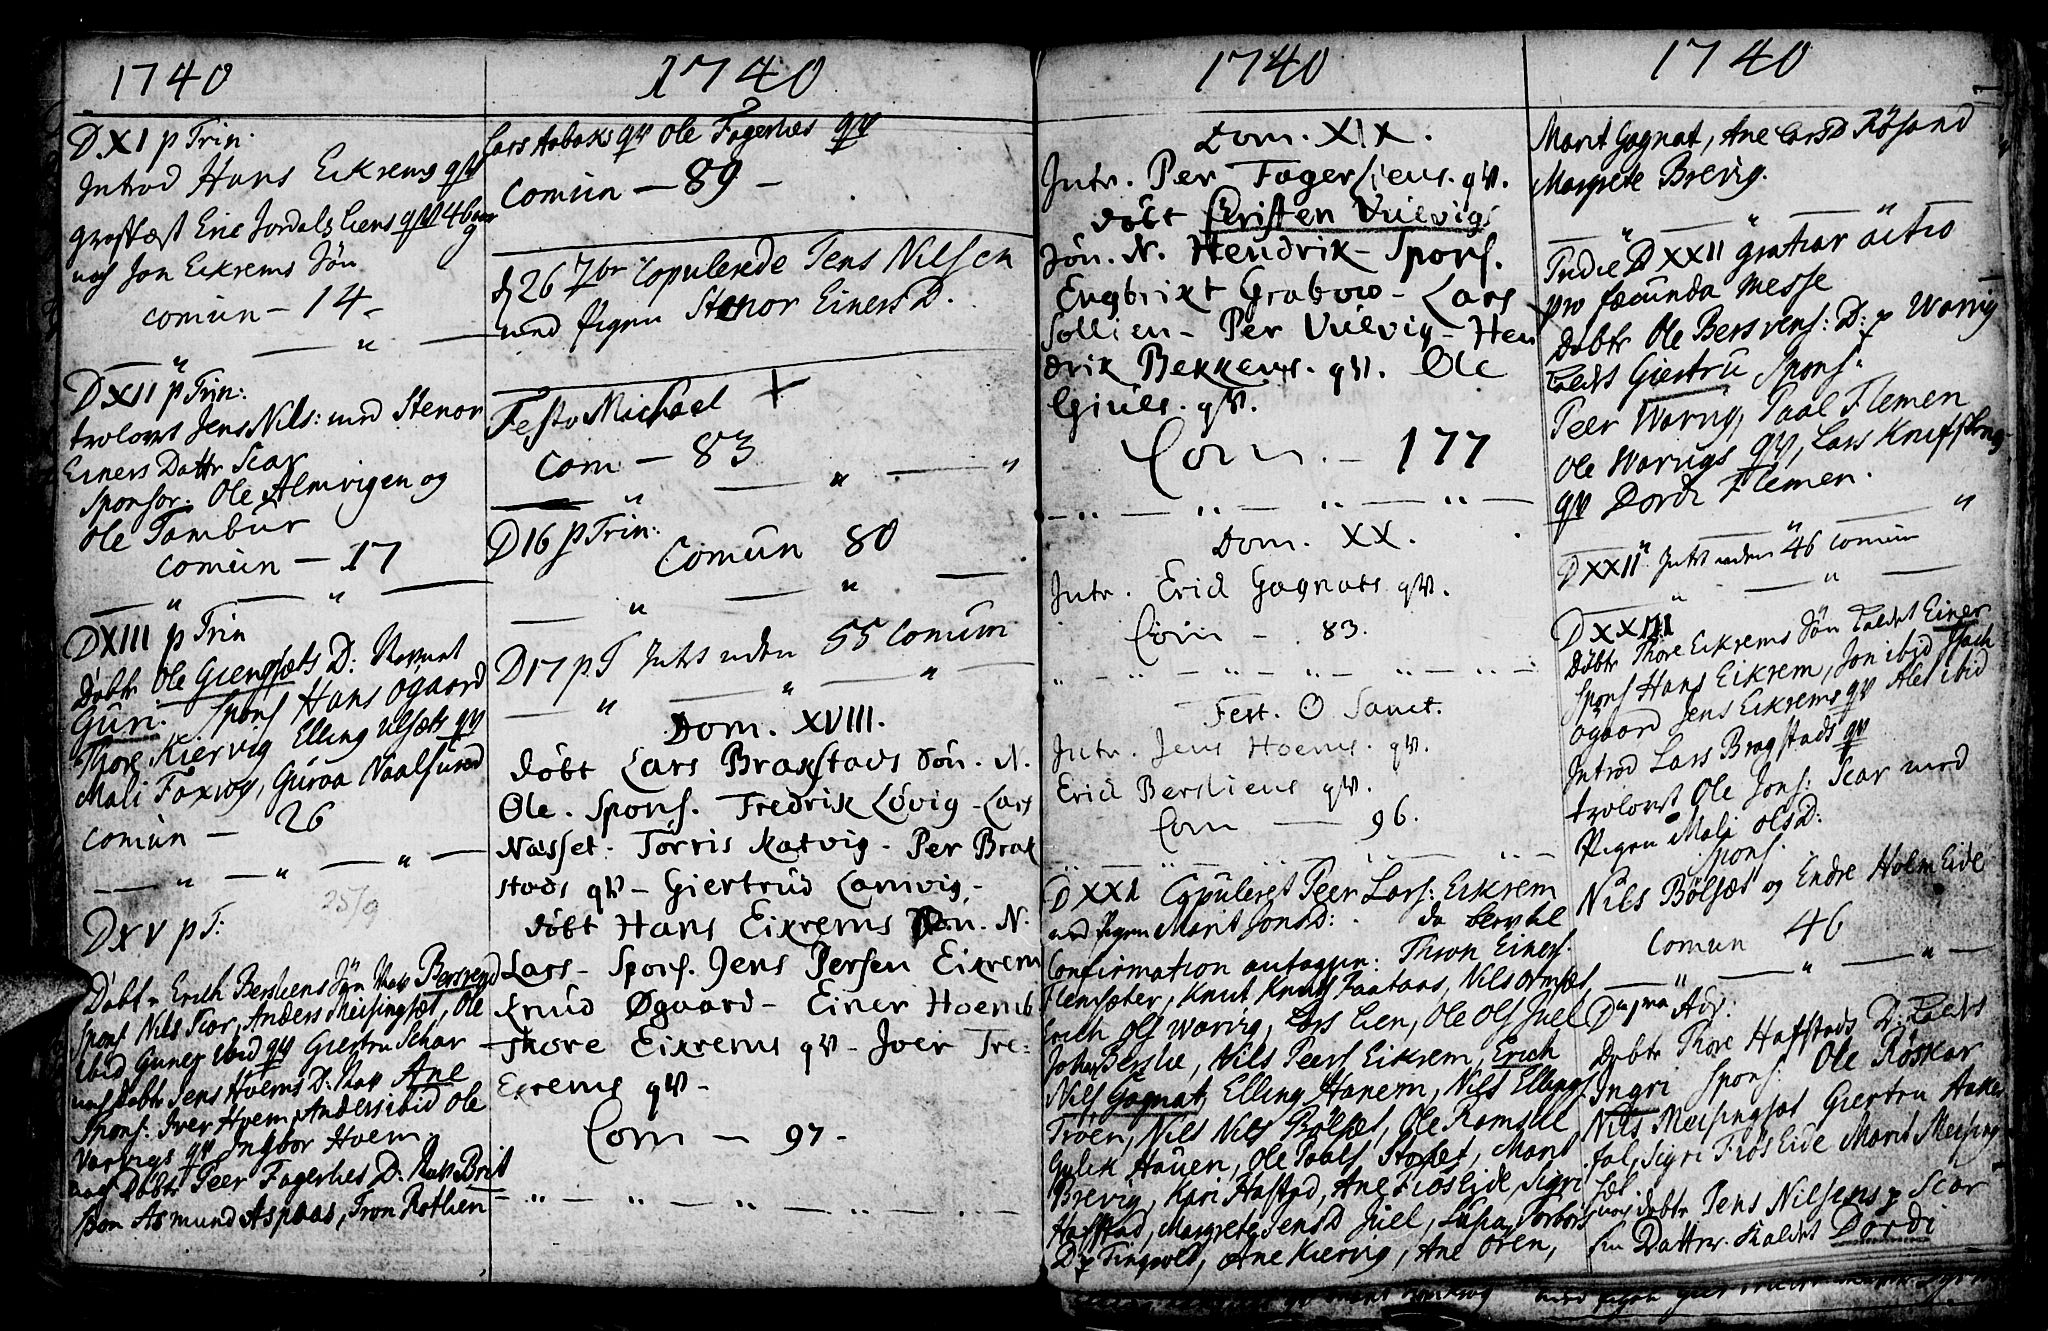 1740
D. XI p Trin:
Introd Hans Eikrems qv
græsfæst Eric Jordals Liens qv 46
nof Jon Eikrems Søn
comun - 14 -
D XII p Trin:
trolovet Jens Nils: med Stenor
Einers Dattr Scar
Sponsor: Ole Almvigen og
Ole Tambur
comun - 17
D XIII p Trin
Døbtr Ole Giengsæts D:
Guri. Spons Hans Ogaard
Thore Kiervig Elling Ulsæts qv
Mali Foxwog, Guroa Naalsund
comun - 26
25/9
D XV p T:
Døbt Erich Bersliens Søn Bersvend
Spons Nils Scar, Anders Meisingsæt, Ole
ibid Guneg ibid qv Giertru Schar
nof døbtr Jens Hoems D. Ane
Spons: Iver Hoem, Anders ibid Ole
Varvigs qv Ingbor Hoem.
nof Døbtr Peer Fagerlies D: Brit
Spon Asmund Aspaas, Tron Rotlien
1740
Lars Aabaks qv Ole Fagerlies qv
comun - 89 -
d 26 7br Copulerede Jens Nilsen
med Pigen Stenor Einers D.
Festo Michael
com - 83
D 16 p Trin:
Comun 80
D 17 p T Intet uden 55 Comun
Dom. XVIII.
døbt Lars Brakstads Søn. N.
Øle. Spons. Fredrik Lövig - Lars
Nasset. Törris Katvig - Per Brak
stads qv - Giertrud Lamvig -
døbt Hans Eikrems Søn. N.
Lars - Spons. Jens Persen Eikrem
Knud Øgaard - Einer Hoem
Thore Eikrems qv - Iver Tre-
Exrems qv -
Com - 97 -
1740
Dom. XIX.
Intr. Per Fagerliens. qv.
døbt Christen Vulvigs
Søn. N. Hendrik - Spons.
Engbrikt Grabow - Lars
Sollien - Per Vulvig - Hen
drik Bekkens. qv. Ole
Giuls. qv.
Com. - 177
Dom. XX.
Intr. Erick Gagnats qv.
Com - 83.
Fest. O Sanct.
Intr. Jens Hoems. qv.
Erick Bersliens qv.
Com - 96.
D XXI Copuleret Peer Lars: Eikrem
med Pigen Marit Jons D:
Confirmation antagen: Thron Einers
Flemsæter, Knut Knuts Faataas, Nils Ormsæt,
Erich Ols Warvig, Lars Lien, Ole Ols Juel
Johan Berslie, Nils Peers Eikrem, Erich
Nils Gagnat, Elling Hanem, Nils Ellings
Troen, Nils Nils Bölsæt, Ole Ramsdle
Gulik Hauen, Ole Paals Stokes, Marit
Brevig, Kari Hafstad, Ane Fiøs Eide, Sigri
Hafstad, Margrete Jens D Juel, Lusia Torbörs
D p Tingvold, Ane Kiervig, Ane Oren,
1740
Marit Gagnat, Ane Lars D Røsand
Margrete Brevig.
Indie D XXII gratiar actio
pro fæcunda Messe
Døbtr Ole Bersvens: D: p Warvig
Giertru Spons:
Peer Warvig, Paal Flemen
Ole Warvigs qv, Lars
qv Dordi Flemen.
D XXII Intet uden 46 comun
D XXIII
Døbtr Thore Eikrems Søn Kaldet Einer
Spons Hans Eikrem, Jon ibid
Ogaard Jens Eikrems qv Ales ibid
Introd Lars Bragstads qv
trolovet Ole Jons: Scar med
Pigen Mali Ols D:
Spons.
Nils Bølsæt og Endre Holm Eide
Comun 46
D Adv:
Døbtr Thore Hafstads D:
Ingri Spons: Ole Røskar
Nils Meisingsæt Giertru
Sigri Fiøs Eide Marit Meising
sæt
nof døbtr Jens Nilsens p Scar
Dattr. Kaldet Dordi